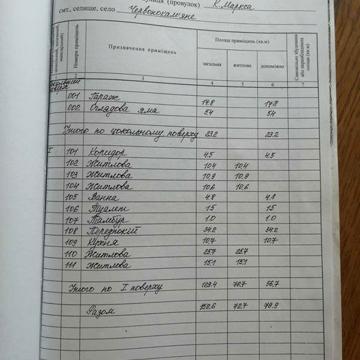 (провулок) К. Маркса
смт, селище, село Червонокам'яне
Номери приміщень Призначення приміщень Площа приміщень (кв.м)
загальна житлова допоміжна
3 4 5 6 7
001 Гараж 17.8 17.8
000 Оглядова яма 5.4 5.4
Усього по цокольному поверху 23.2 23.2
I 101 Коридор 4.5 4.5
102 Житлова 10.4 10.4
103 Житлова 10.9 10.9
104 Житлова 10.6 10.6
105 Ванна 4.8 4.8
106 Туалет 1.5 1.5
107 Тамбур 1.0 1.0
108 Передпокій 34.2 34.2
109 Кухня 10.7 10.7
110 Житлова 25.7 25.7
111 Житлова 15.1 15.1
Усього по I поверху 129.4 72.7 56.7
Разом 152.6 72.7 79.9